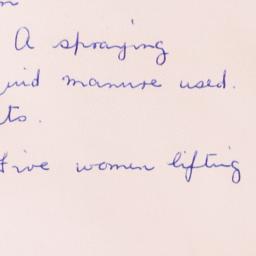 A spraying
manure used.
ts.
Five women lifting